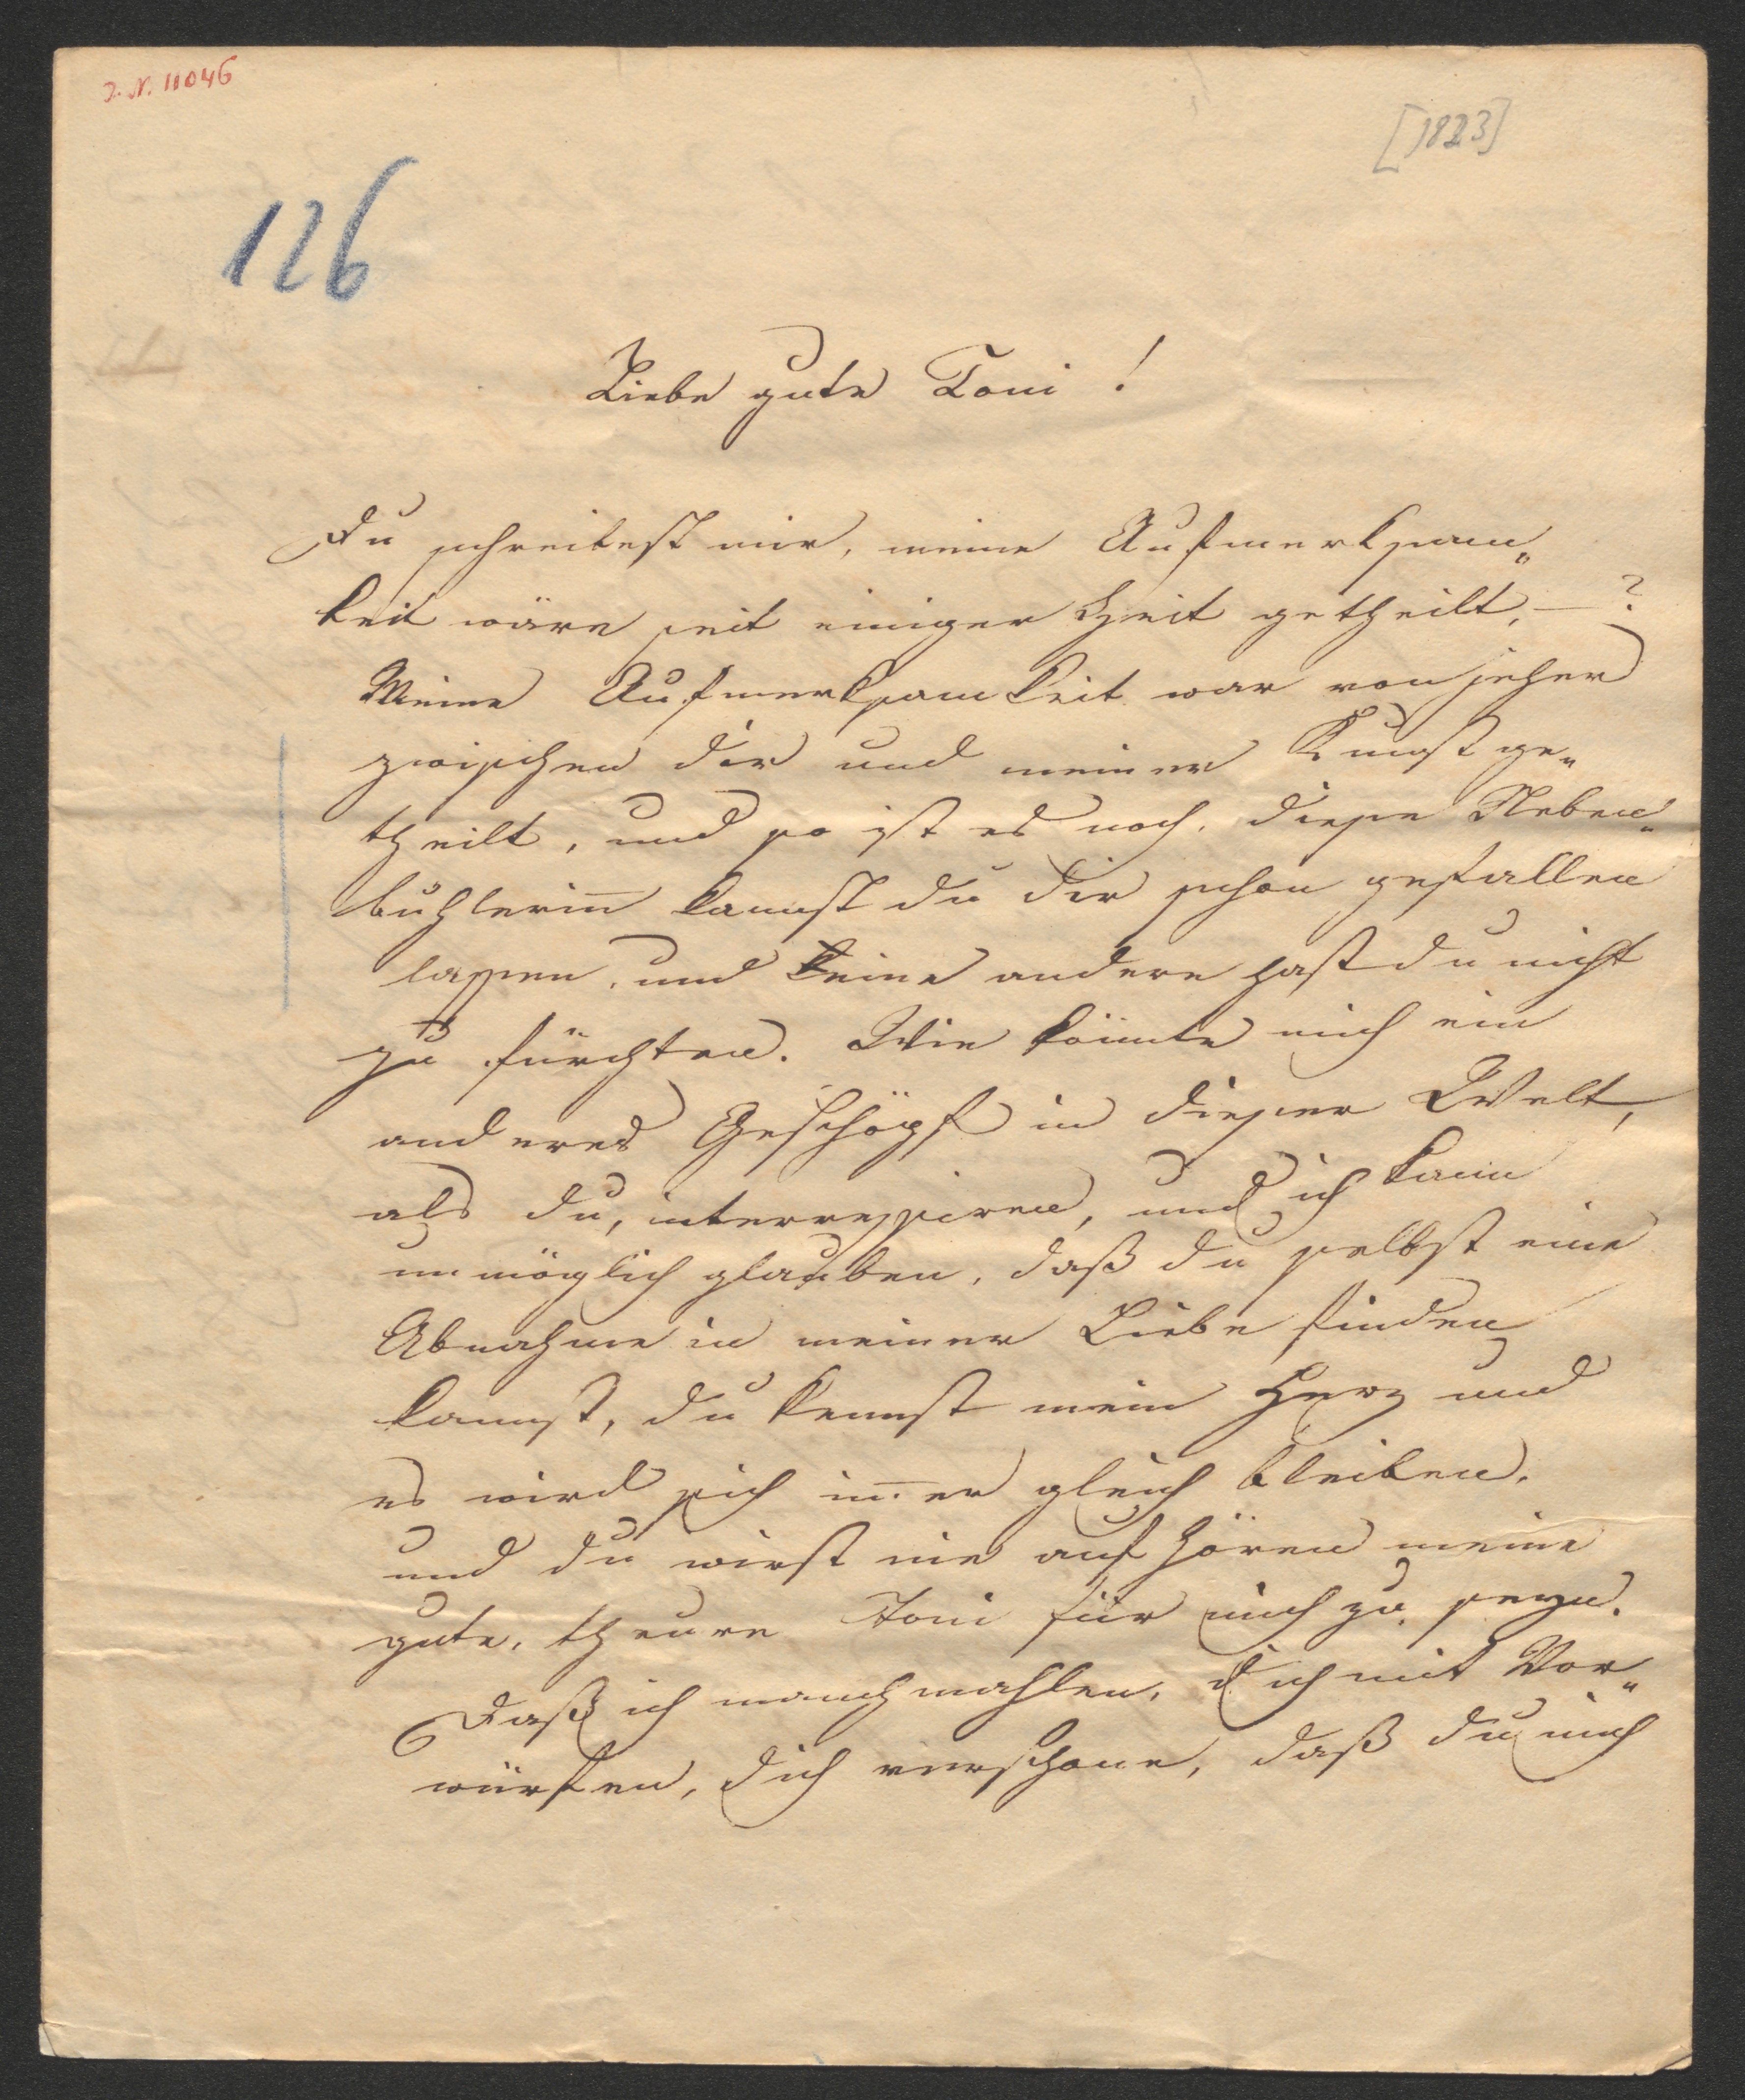 J. N. 11046
[1823]
126
Liebe gute Toni!
Du schreibest mir, meine Aufmerksam„
keit wäre seit einiger Zeit getheilt, — ?
Meine Aufmerksamkeit war von jeher
zwischen dir und meiner Kunst ge„
theilt, und so ist es noch. diese Neben„
buhlerin̅ kannst du dir schon gefallen
lassen, und keine andere hast du nicht
zu fürchten. Wie könnte mich ein
anderes Geschöpf in dieser Welt,
als du, interressiren, und ich kann
unmöglich glauben, daß du selbst eine
Abnahme in meiner Liebe finden
kannst, du kennst mein Herz und
es wird sich im̅er gleich bleiben.
und du wirst nie aufhören meine
gute, theure Toni für mich zu seyn.
Daß ich manchmahlen, dich mit Vor„
würfen, dich verschone, daß du mich